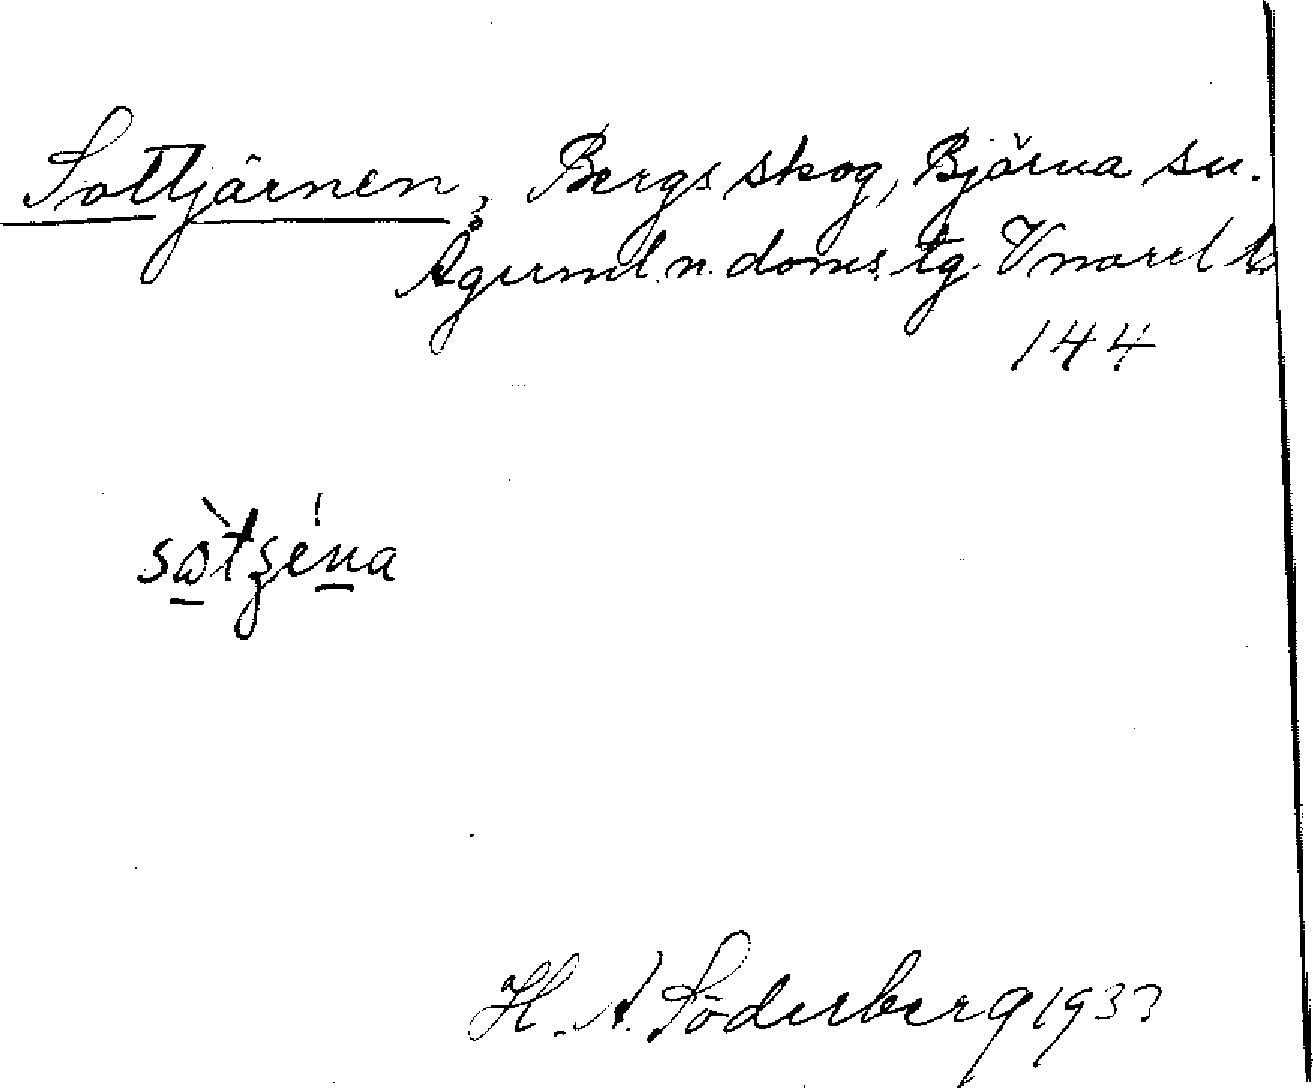 Sottjärnen, Bergs skog, Björna sn.
Ågerml. n. doms. tg. Vnorrl
144
sòtzéna
H. A. Söderberg 1933